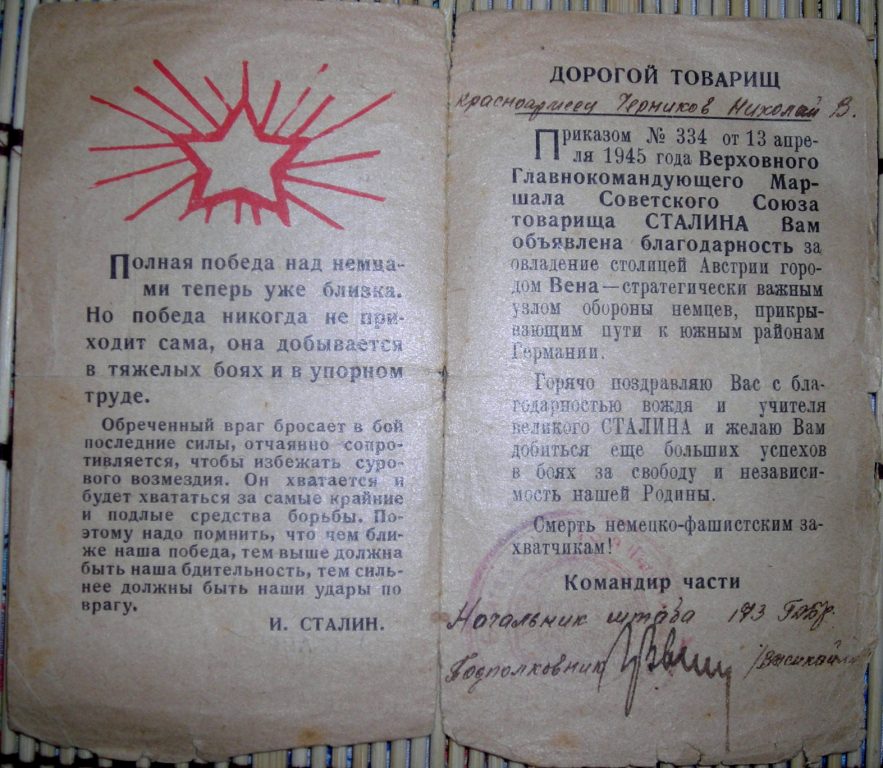 Полная победа над немца-
ми теперь уже близка.
Но победа никогда не при-
ходит сама, она добывается
в тяжелых боях и в упорном
труде.
Обреченный враг бросает в бой
последние силы, отчаянно сопро-
тивляется, чтобы избежать суро-
вого возмездия. Он хватается и
будет хвататься за самые крайние
и подлые средства борьбы. По-
этому надо помнить, что чем бли-
же наша победа, тем выше должна
быть наша бдительность, тем силь-
нее должны быть наши удары по
врагу.
И. СТАЛИН.
ДОРОГОЙ ТОВАРИЩ
красноармеец Черников Николай В.
Приказом № 334 от 13 апре-
ля 1945 года Верховного
Главнокомандующего Мар-
шала Советского Союза
товарища СТАЛИНА Вам
объявлена благодарность за
овладение столицей Австрии горо-
дом Вена—стратегически важным
узлом обороны немцев, прикры-
вающим пути к южным районам
Германии.
Горячо поздравляю Вас с бла-
годарностью вождя и учителя
великого СТАЛИНА и желаю Вам
добиться еще больших успехов
в боях за свободу и независи-
мость нашей Родины.
Смерть немецко-фашистским за-
хватчикам!
Командир части
Начальник штаба 173
Подполковник